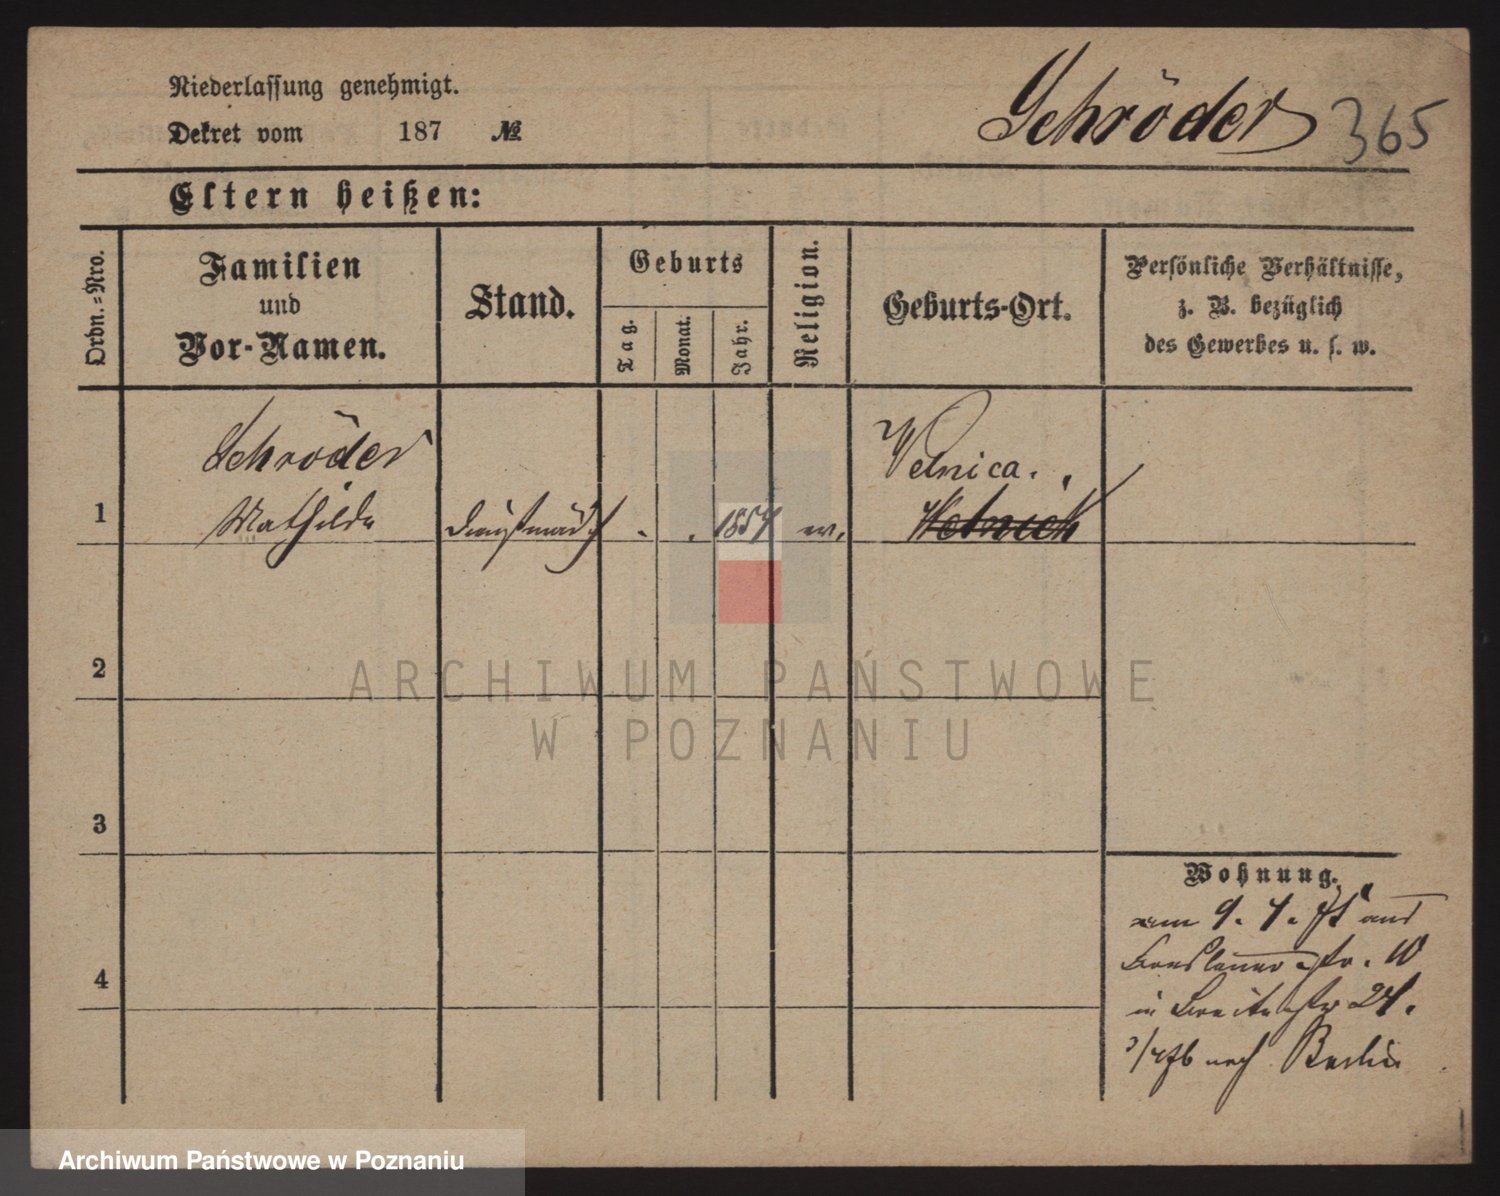 Niederlassung genehmigt.
Dekret vom 187 №
Schröder 365
Eltern heißen:
Ordn.=Nro.
Familien
und
Vor-Namen.
Stand.
Geburts
Tag.
Monat.
Jahr.
Religion.
Geburts-Ort.
Persönliche Verhältnisse,
z. B. bezüglich
des Gewerbes u. s. w.
1
Schröder
Mathilde
Dienstmädch
1854
ev.
Welnica.
2
3
4
Wohnung.
am 9. 4. 75 aus
Breslauerstr. 10
in Breitestr 24.
3/4 76 nach Berlin
ARCHIWUM PAŃSTWOWE
W POZNANIU
Archiwum Państwowe w Poznaniu